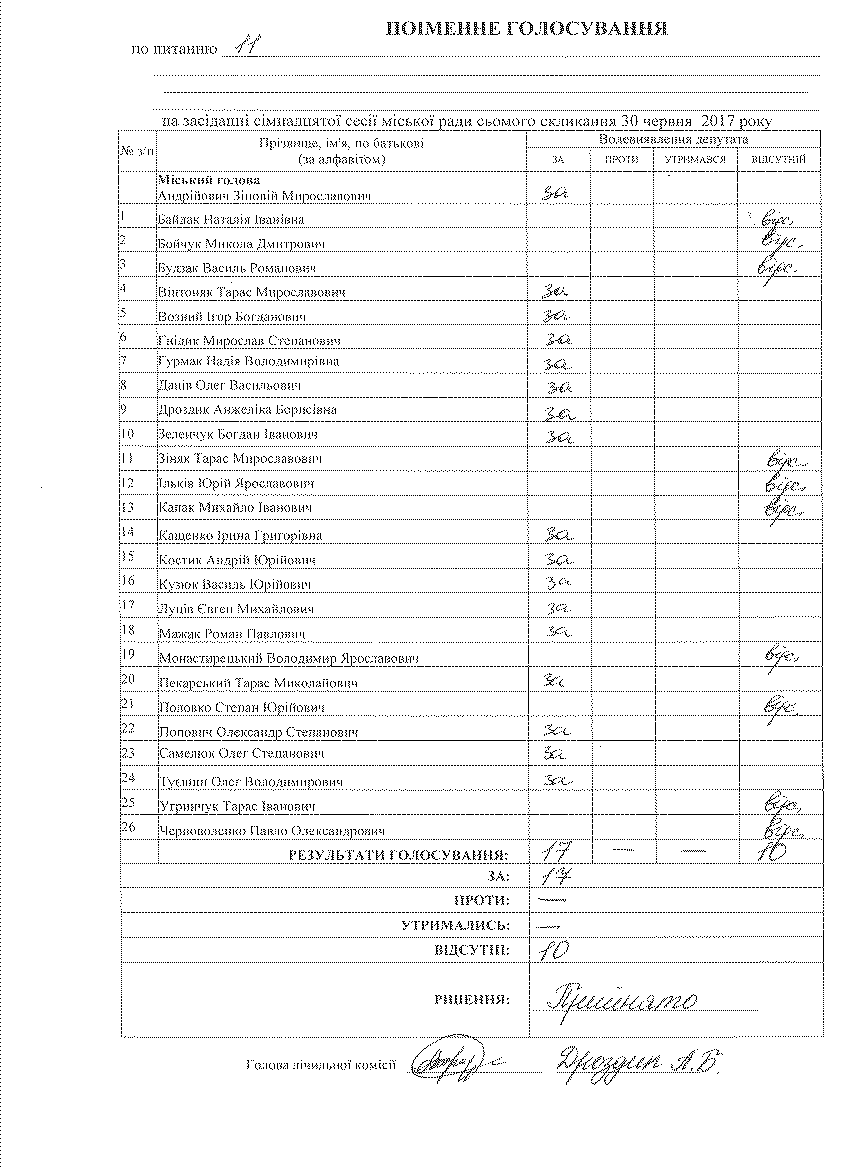 ПОІМЕННЕ ГОЛОСУВАННЯ
по питанню 11
на засіданні сімнадцятої сесії міської ради сьомого скликання 30 червня 2017 року
№ з/п Прізвище, ім'я, по батькові (за алфавітом) Волевиявлення депутата
ЗА ПРОТИ УТРИМАВСЯ ВІДСУТНІЙ
Міський голова
Андрійович Зіновій Мирославович за
1 Байдак Наталія Іванівна відс.
2 Бойчук Микола Дмитрович відс.
3 Будзак Василь Романович відс.
4 Вінтоняк Тарас Мирославович за
5 Возний Ігор Богданович за
6 Гнідик Мирослав Степанович за
7 Гурмак Надія Володимирівна за
8 Даців Олег Васильович за
9 Дроздик Анжеліка Борисівна за
10 Зеленчук Богдан Іванович за
11 Зіняк Тарас Мирославович відс.
12 Ільків Юрій Ярославович відс.
13 Капак Михайло Іванович відс.
14 Кащенко Ірина Григорівна за
15 Костик Андрій Юрійович за
16 Кузюк Василь Юрійович за
17 Луців Євген Михайлович за
18 Мажак Роман Павлович за
19 Монастирецький Володимир Ярославович відс.
20 Пекарський Тарас Миколайович за
21 Половко Степан Юрійович відс.
22 Попович Олександр Степанович за
23 Самелюк Олег Степанович за
24 Олег Володимирович за
25 Угринчук Тарас Іванович відс.
26 Червоволенко Павло Олександрович відс.
РЕЗУЛЬТАТИ ГОЛОСУВАННЯ: 17 — — 10
ЗА: 17
ПРОТИ: —
УТРИМАЛИСЬ: —
ВІДСУТНІ: 10
РІШЕННЯ: Прийнято
Голова лічильної комісії Дроздик А.Б.